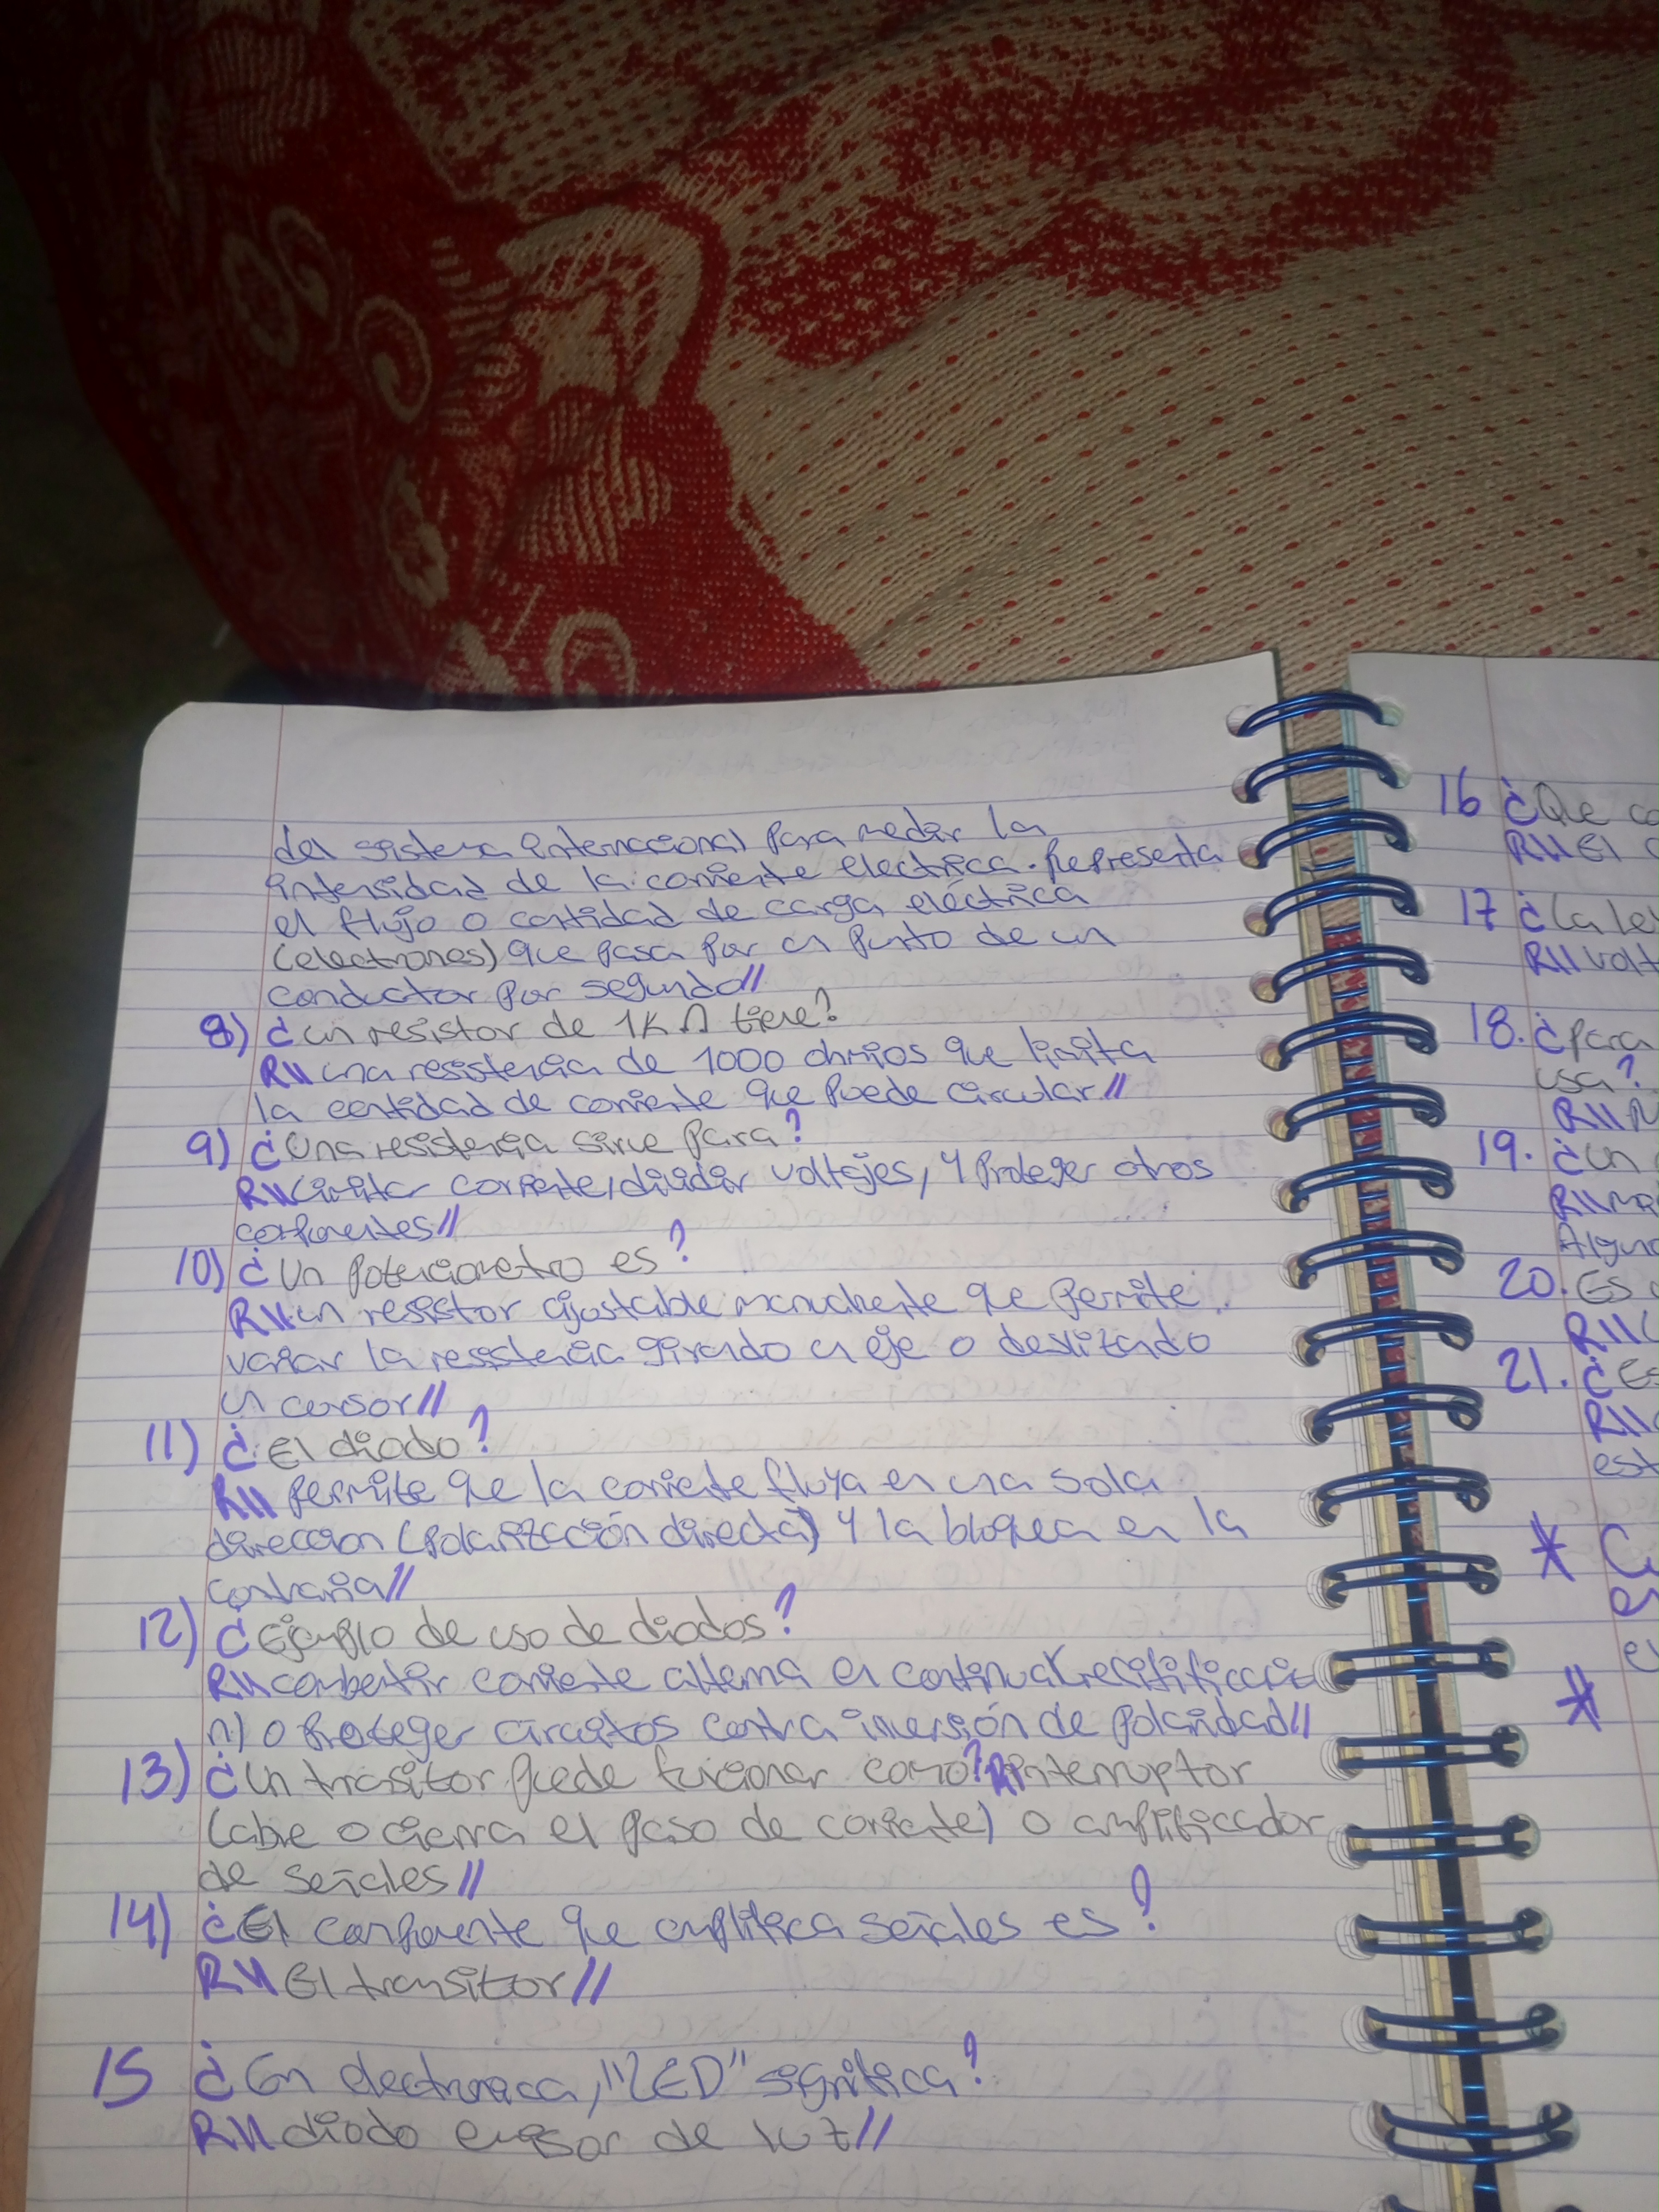 del sistema internacional para medir la
intensidad de la corriente electrica. Representa
el flujo o cantidad de carga eléctrica
(electrones) que pasa por un punto de un
conductor por segundo//
8) ¿un resistor de 1KΩ tiene?
R// una resistencia de 1000 ohmios que limita
la cantidad de corriente que puede circular//
9) ¿Una resistencia sirve para?
R// limitar corriente, dividir voltajes, y proteger otros
componentes//
10) ¿Un potenciometro es?
R// un resistor ajustable manualmente que permite
variar la resistencia girando un eje o deslizando
un cursor//
11) ¿El diodo?
R// permite que la corriente fluya en una sola
direccion (polarización directa) y la bloquea en la
contraria//
12) ¿Ejemplo de uso de diodos?
R// conbertir corriente alterna en continua(
n) o proteger circuitos contra inversión de polaridad//
13) ¿Un transitor puede funcionar como? R// interruptor
(abre o cierra el paso de corriente) o amplificador
de señales//
14) ¿El componente que amplifica señales es?
R// El transitor//
15 ¿En electronica, "LED" significa?
R// diodo emisor de luz//
16 ¿Que
R// El
17 ¿La
R//
18. ¿para
usa?
R//
19. ¿Un
R//
20. Es
R//
21. ¿Es
R//
*
*